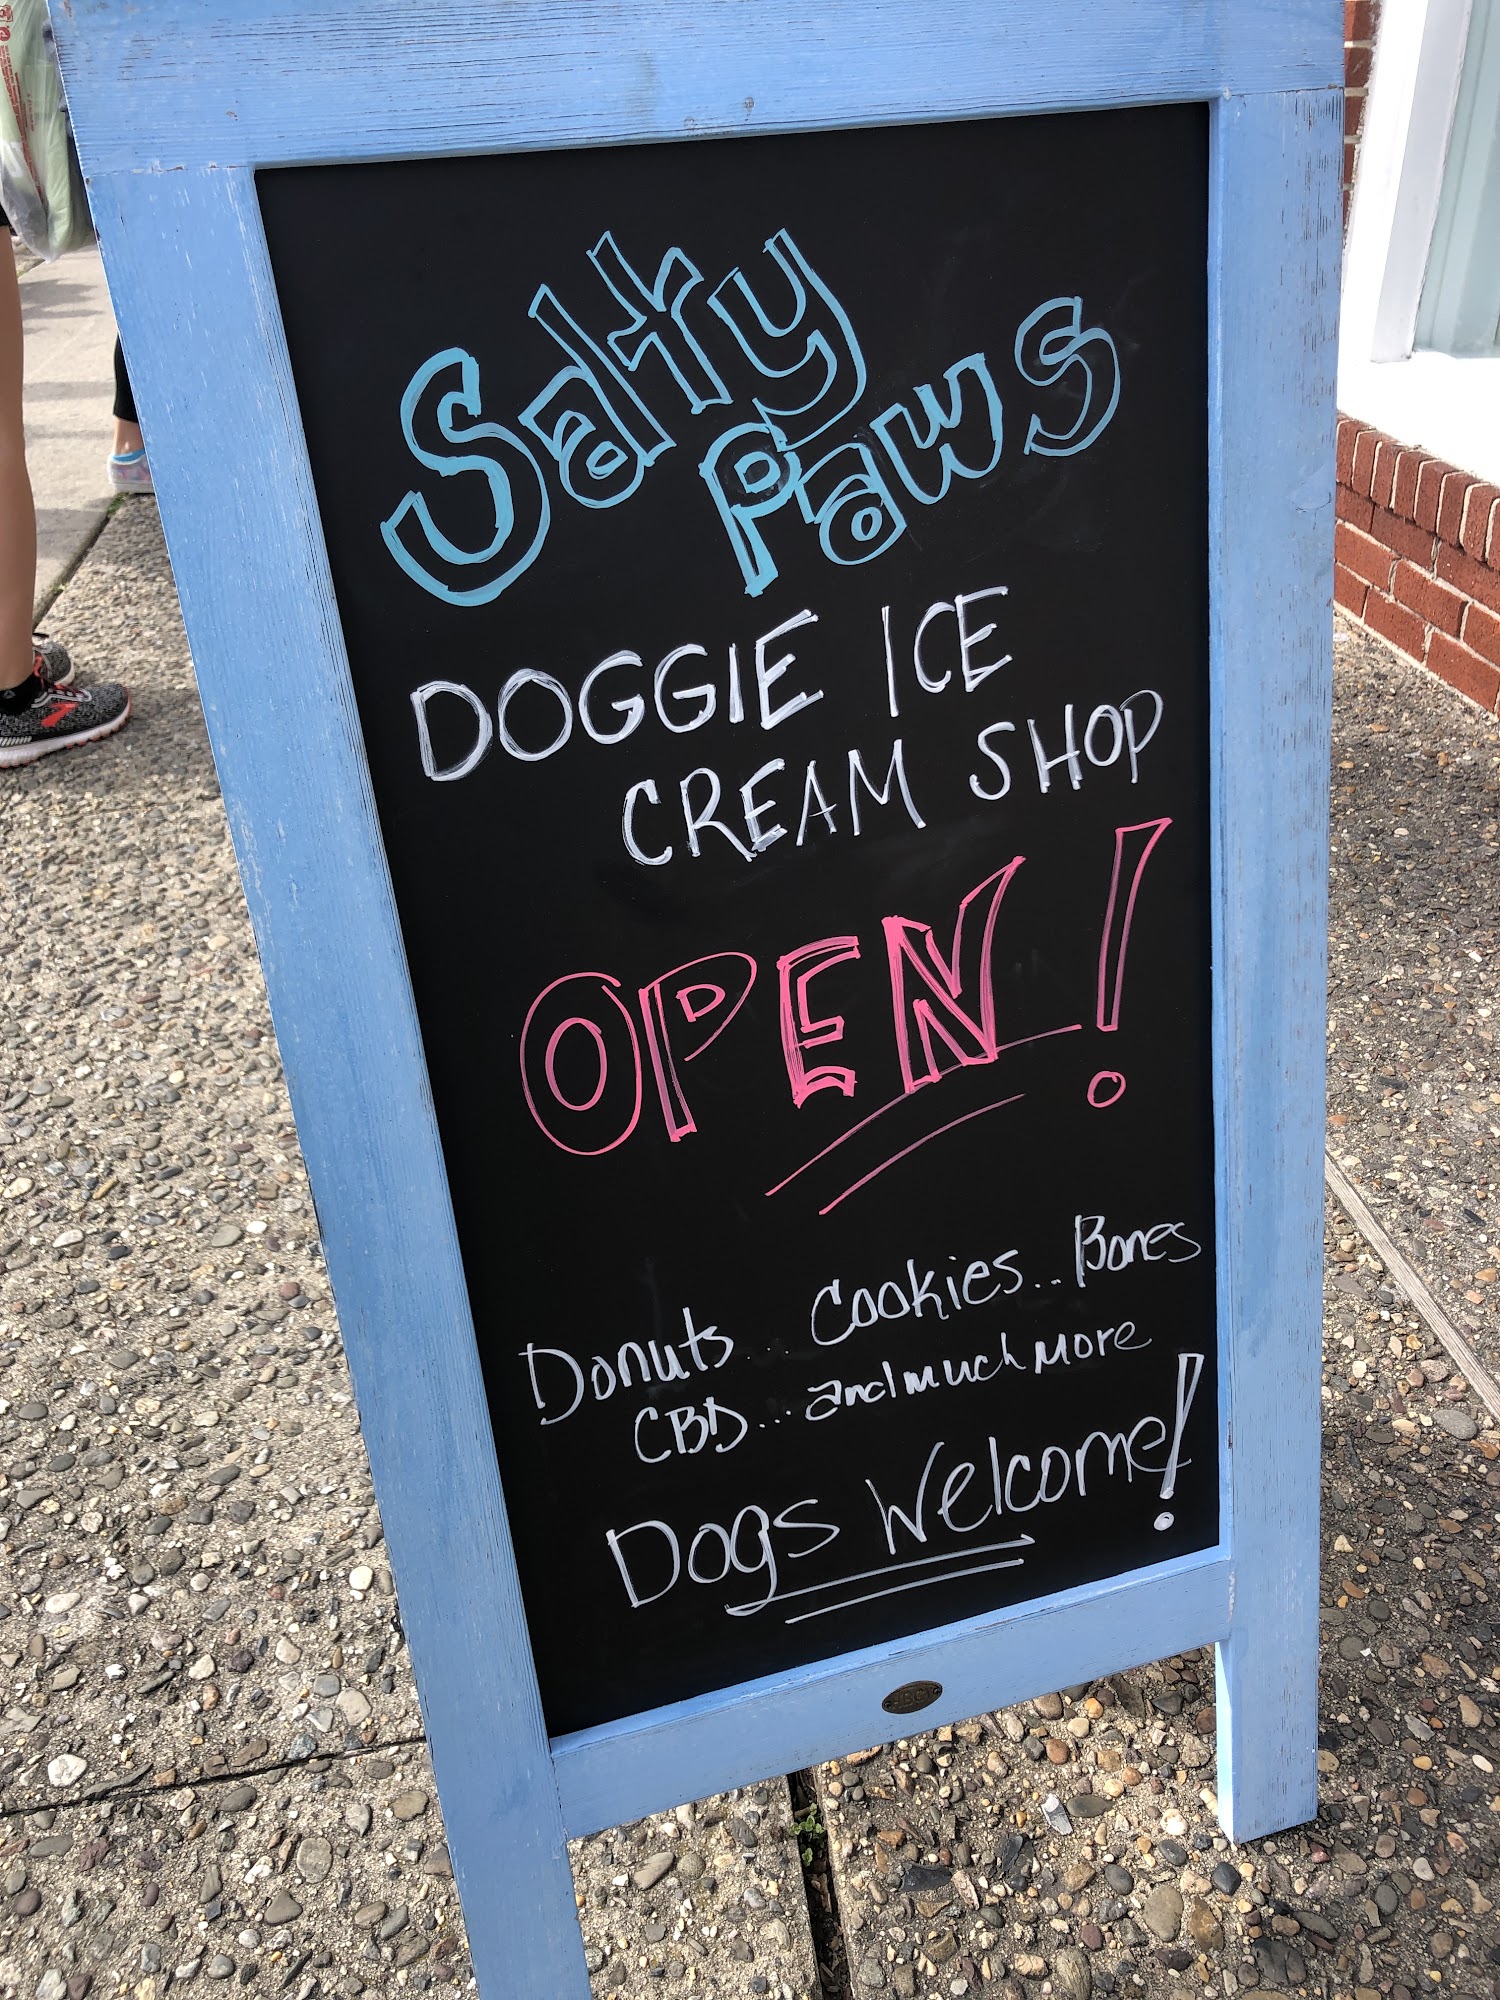 Salty
Paws
DOGGIE ICE
CREAM SHOP
OPEN!
Donuts... Cookies... Bones
CBD... and much more
Dogs Welcome!